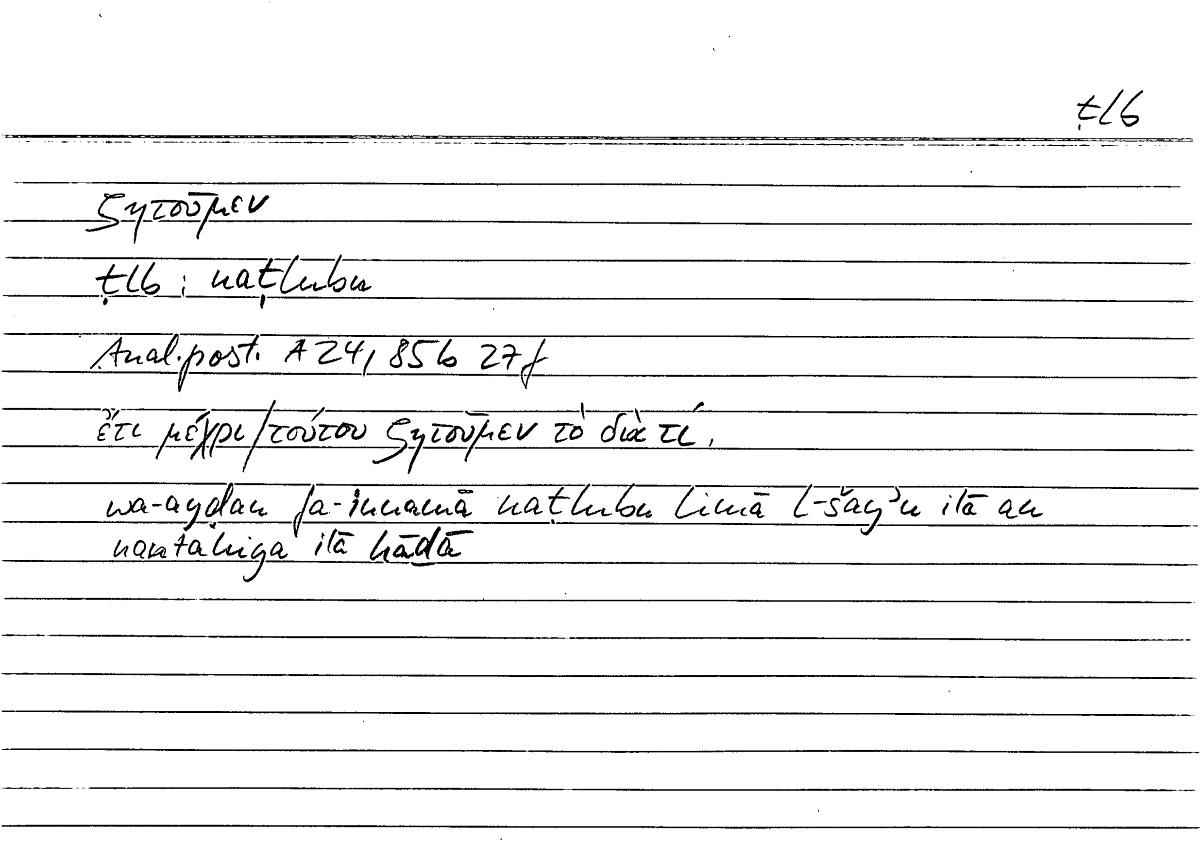 ṭlb
ζητοῦμεν
ṭlb : naṭlubu
Anal.post. A 24, 85b 27f
ἔτι μέχρι/τούτου ζητοῦμεν τὸ διὰ τί,
wa-ayḍan fa-innamā naṭlubu limā l-šay'u ilā an
nantahiya ilā hāḏā